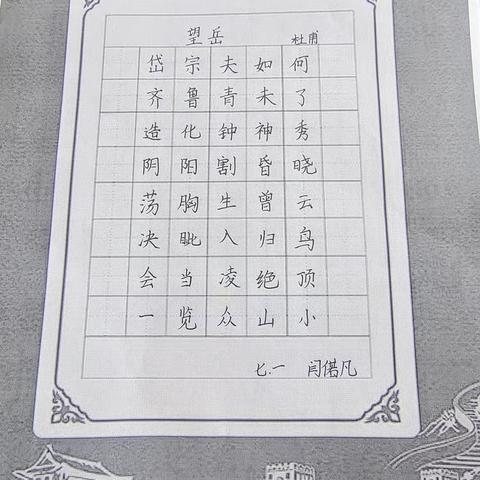 望岳 杜甫
岱宗夫如何
齐鲁青未了
造化钟神秀
阴阳割昏晓
荡胸生曾云
决眦入归鸟
会当凌绝顶
一览众山小
七.一 闫偡凡